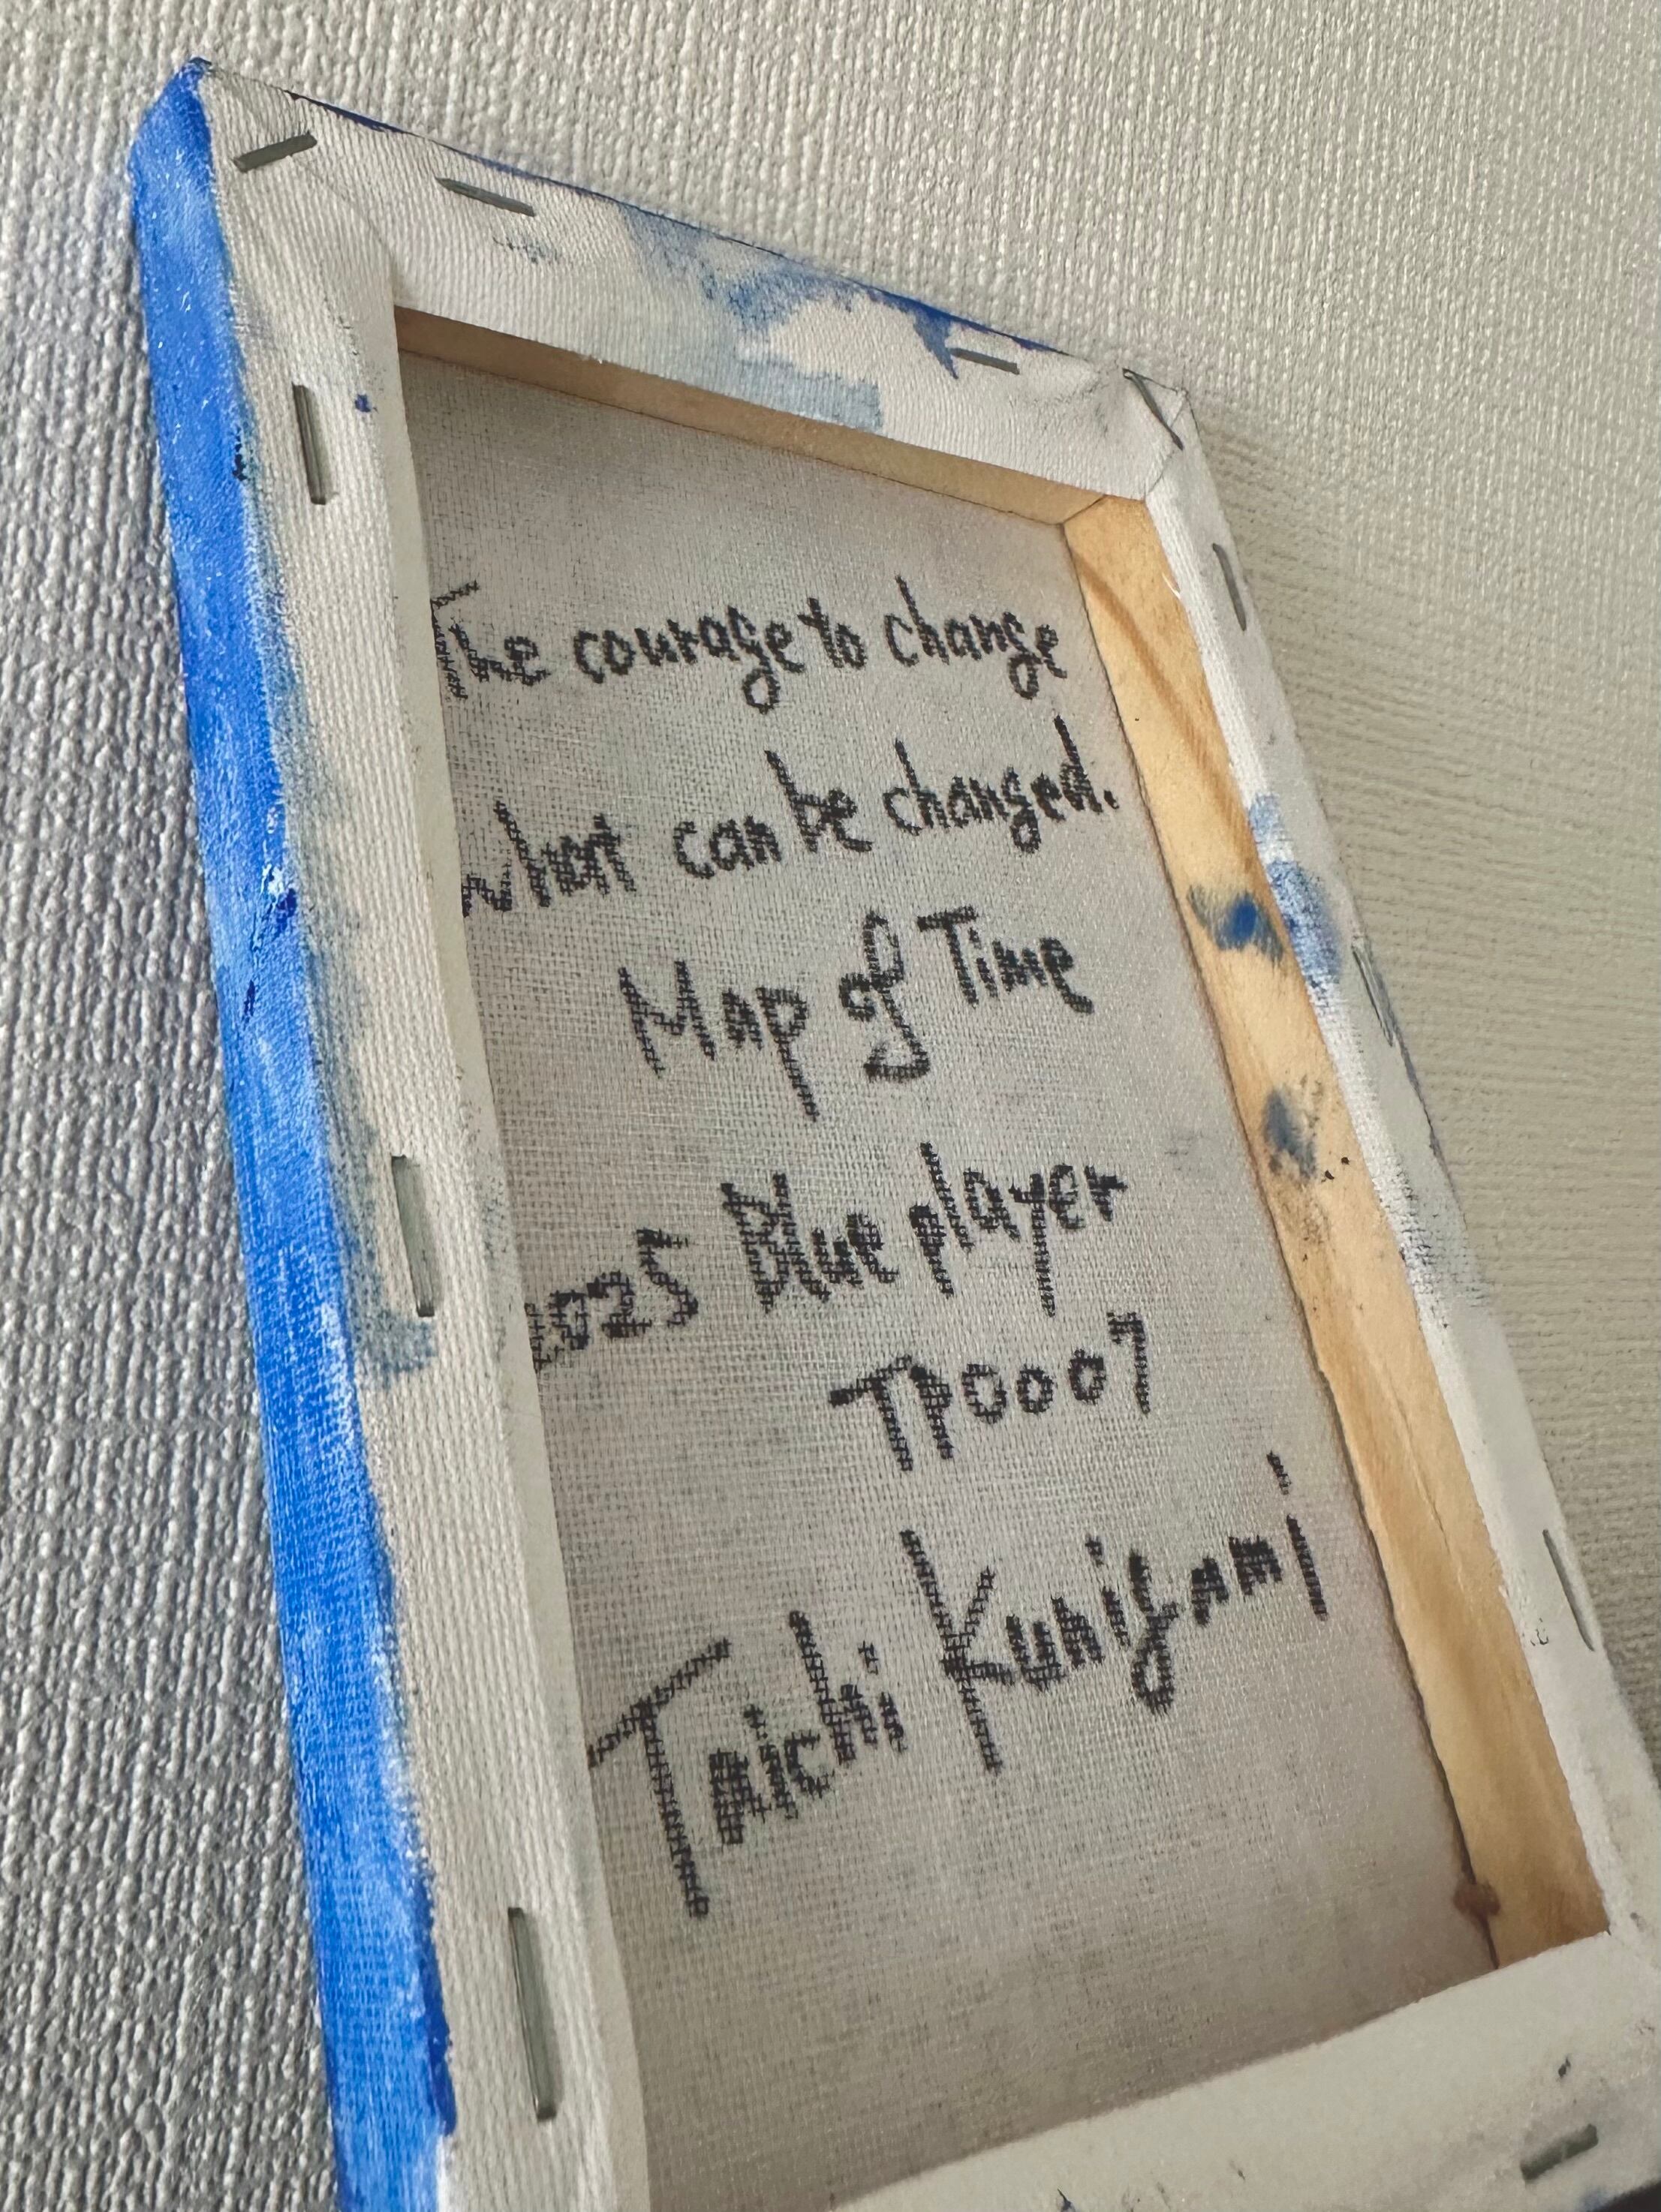 The courage to change
what can be changed.
Map of Time
Blue player
TP0007
Taichi Kunigami